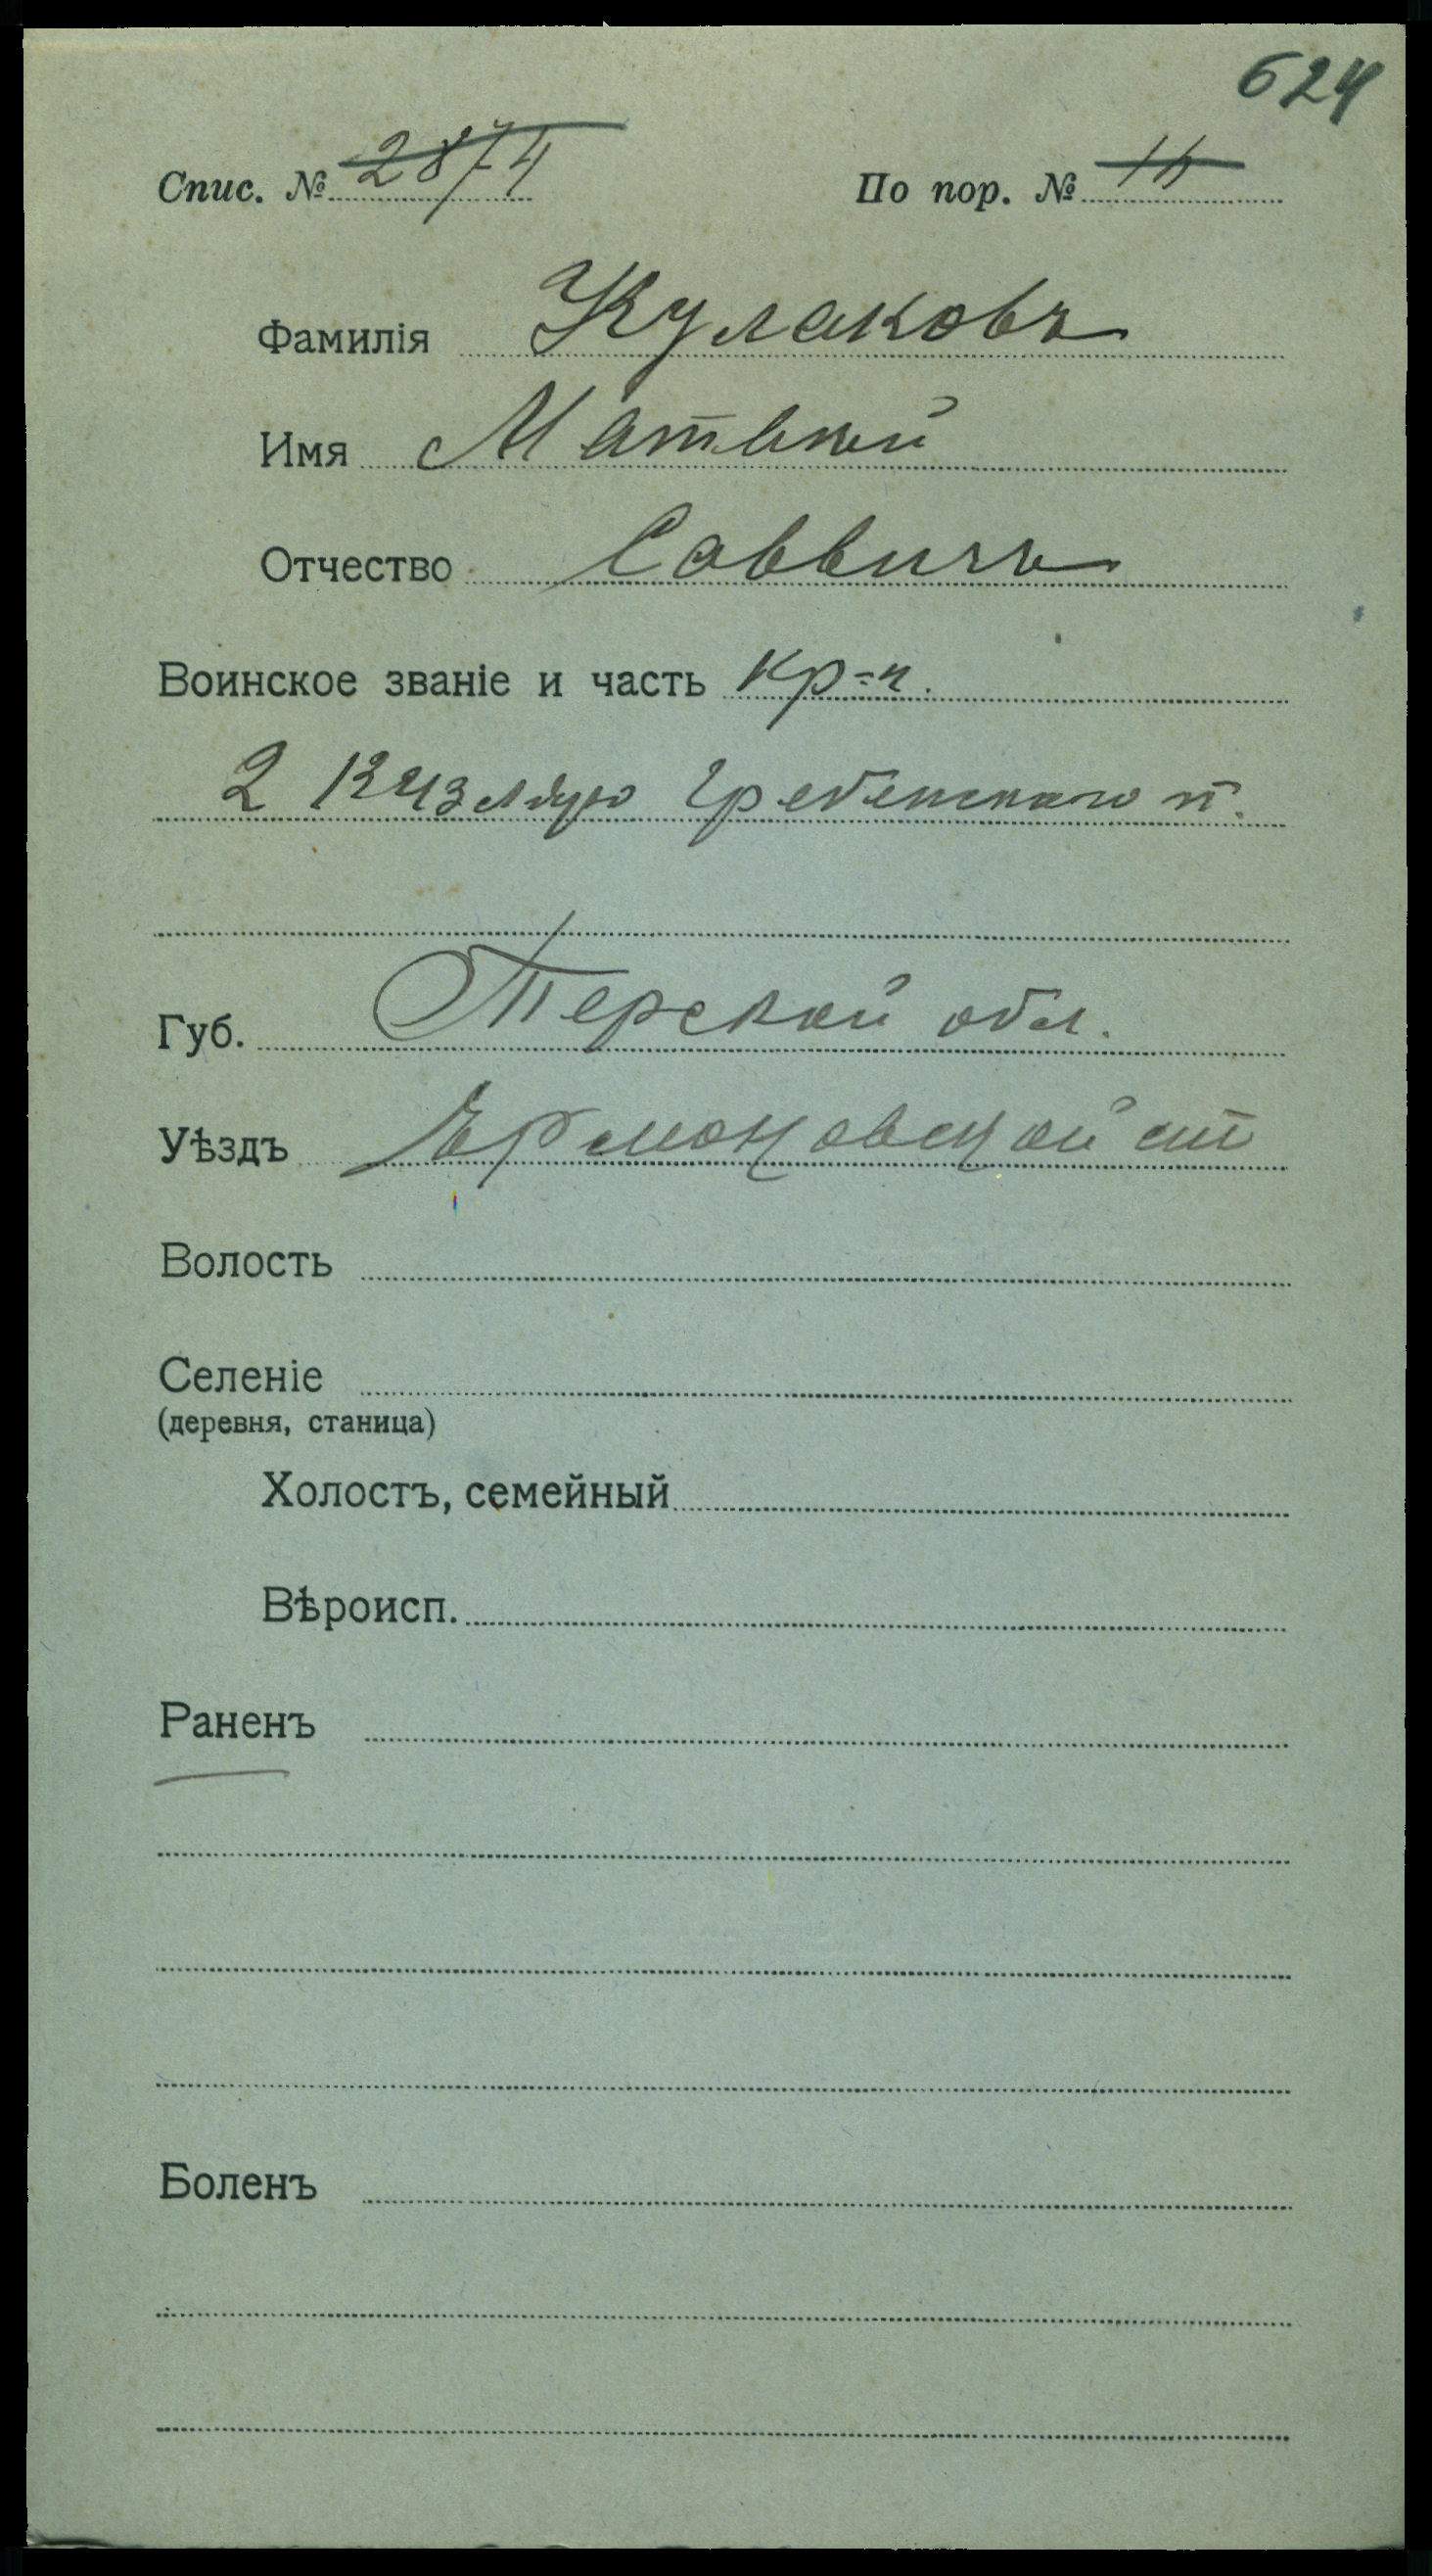 624
Спис. № 2874 По пор. № 11
Фамилія Кулаковъ
Имя Матвѣй
Отчество Саввичъ
Воинское званіе и часть кр-н.
2 Кизляро Гребенского п.
Губ. Терской обл.
Уѣздъ ст
Волость
Селеніе
(деревня, станица)
Холостъ, семейный
Вѣроисп.
Раненъ
Боленъ